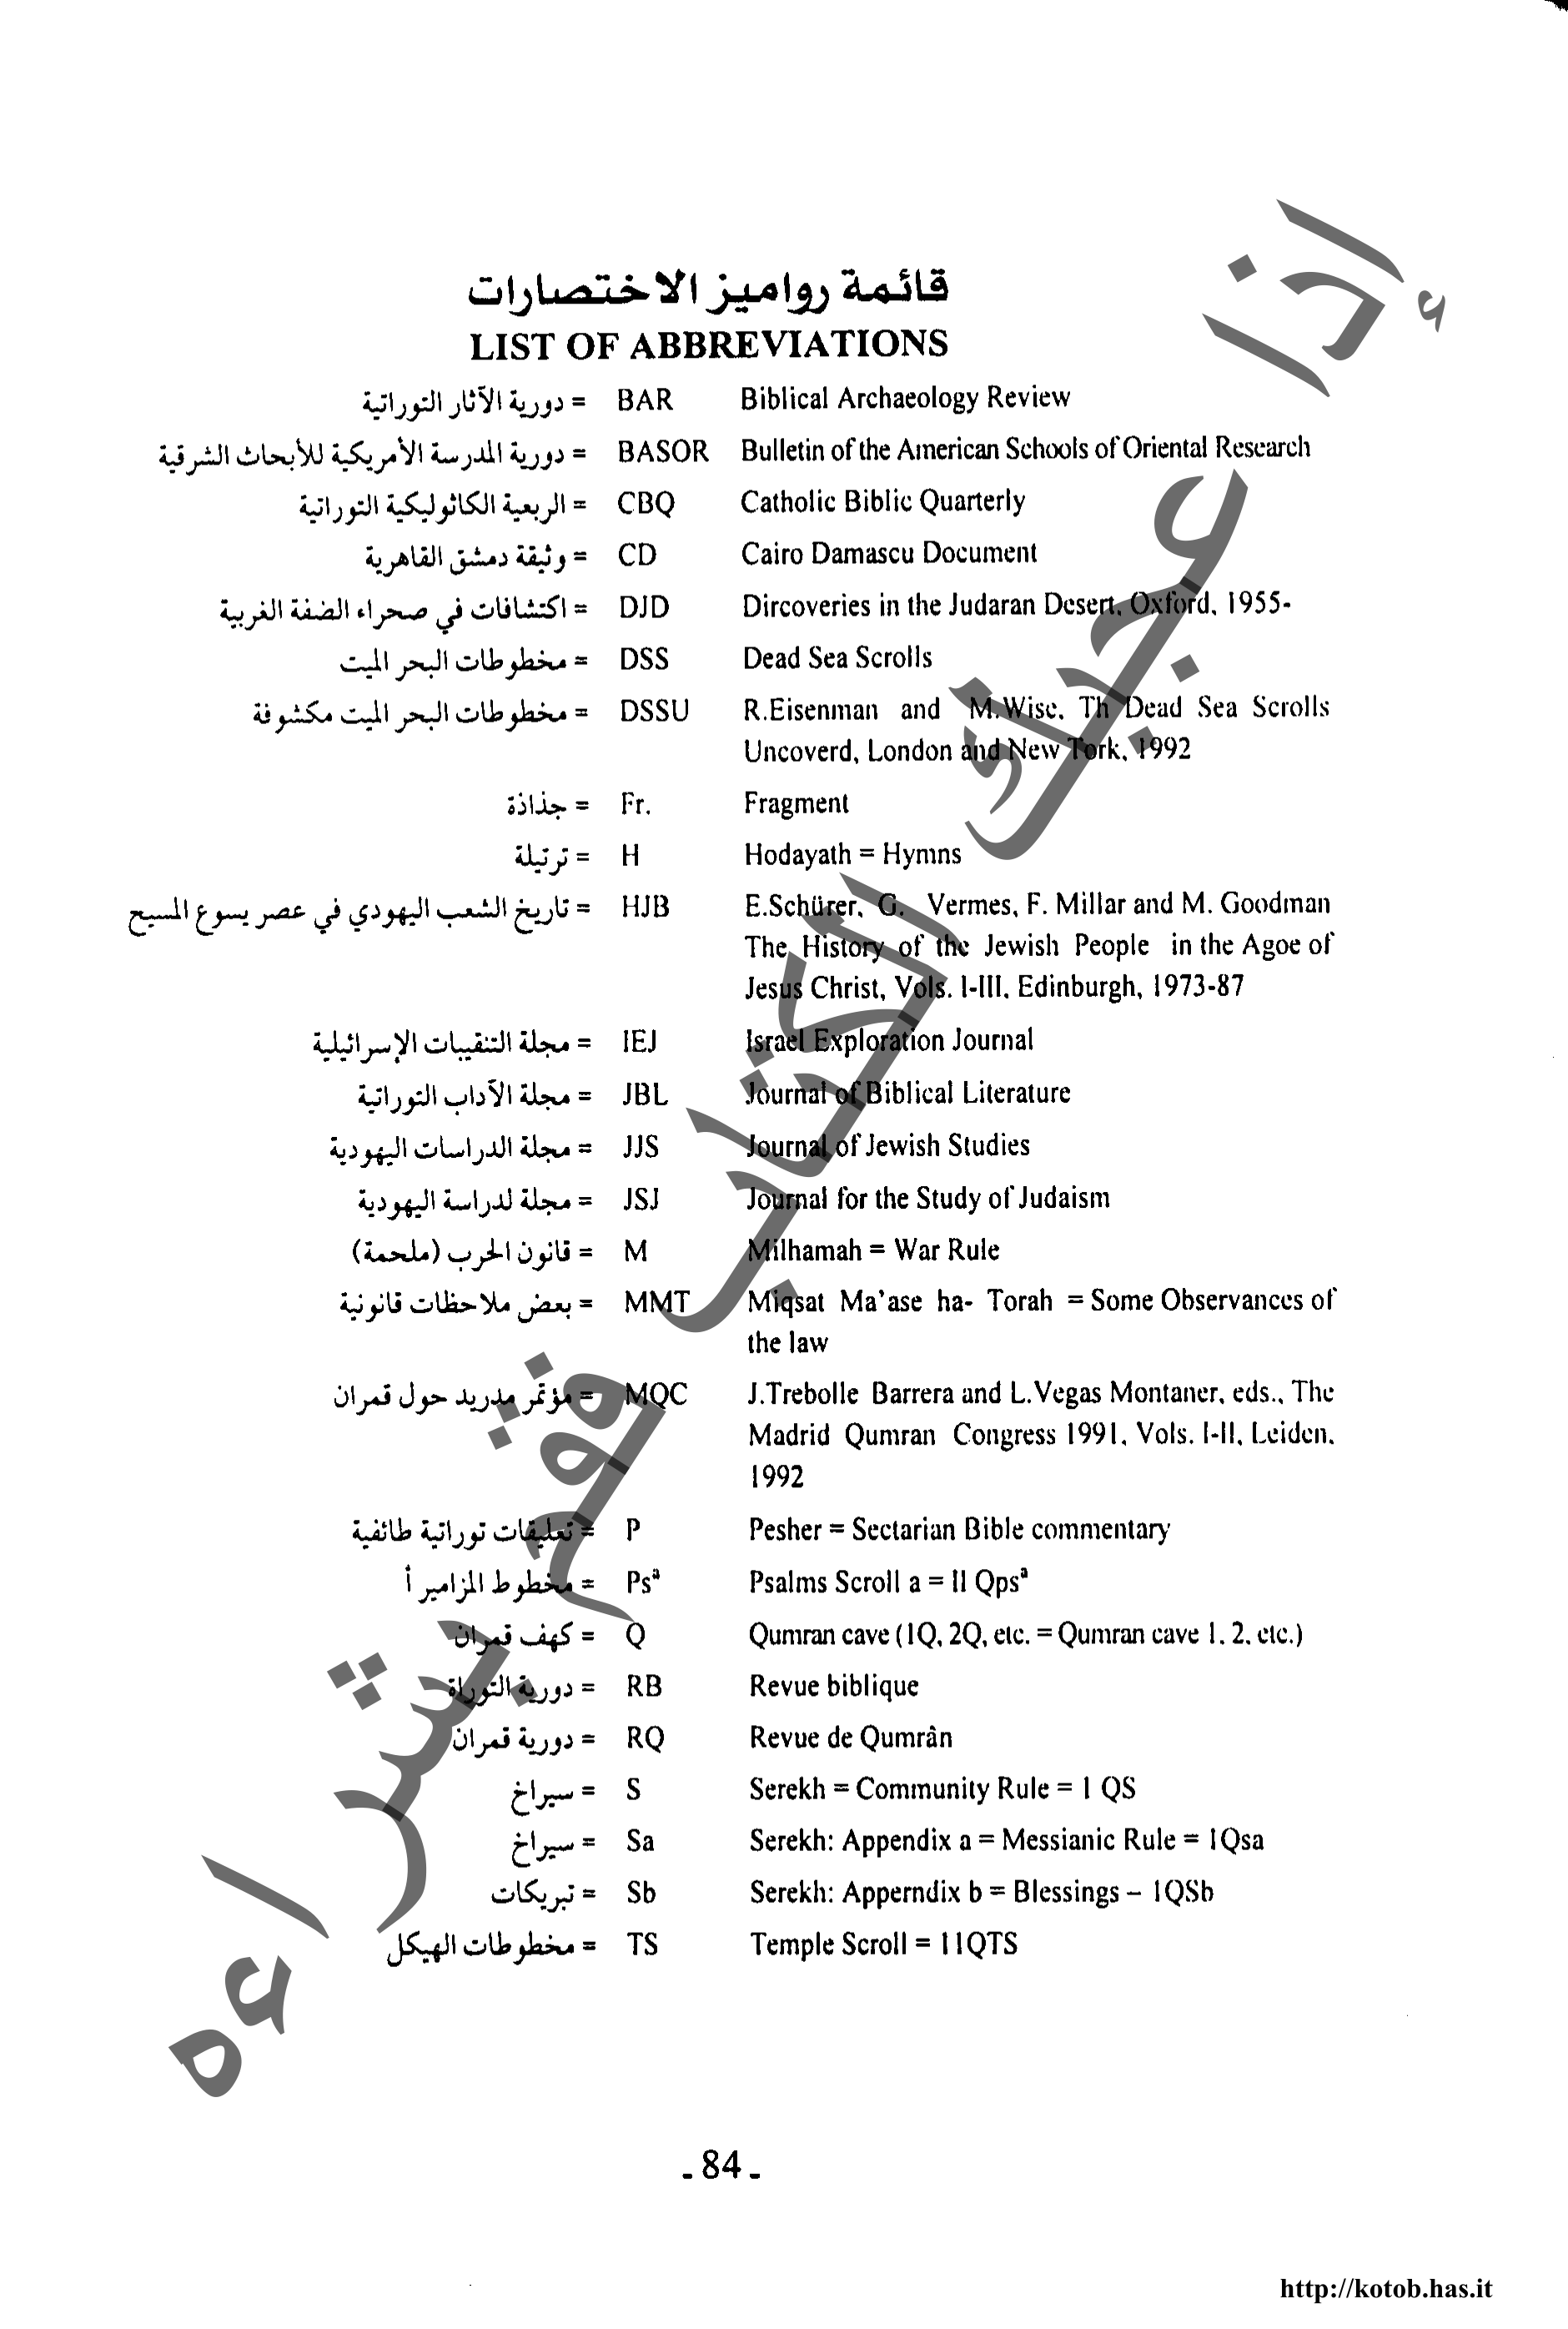 قائمة رواميز الاختصارات
LIST OF ABBREVIATIONS
= دورية الآثار التوراتية BAR Biblical Archaeology Review
= دورية المدرسة الأمريكية للأبحاث الشرقية BASOR Bulletin of the American Schools of Oriental Research
= الربعية الكاثوليكية التوراتية CBQ Catholic Biblic Quarterly
= وثيقة دمشق القاهرية CD Cairo Damascu Document
= اكتشافات في صحراء الضفة الغربية DJD Dircoveries in the Judaran Desert, Oxford, 1955-
= مخطوطات البحر الميت DSS Dead Sea Scrolls
= مخطوطات البحر الميت مكشوفة DSSU R.Eisenman and M.Wise, Th Dead Sea Scrolls
Uncoverd, London and New Tork, 1992
= جذاذة Fr. Fragment
= ترتيلة H Hodayath = Hymns
= تاريخ الشعب اليهودي في عصر يسوع المسيح HJB E.Schürer, G. Vermes, F. Millar and M. Goodman
The History of the Jewish People in the Agoe of
Jesus Christ, Vols. I-III, Edinburgh, 1973-87
= مجلة التنقيبات الإسرائيلية IEJ Israel Exploration Journal
= مجلة الآداب التوراتية JBL Journal of Biblical Literature
= مجلة الدراسات اليهودية JJS Journal of Jewish Studies
= مجلة لدراسة اليهودية JSJ Journal for the Study of Judaism
= قانون الحرب (ملحمة) M Milhamah = War Rule
= بعض ملاحظات قانونية MMT Miqsat Ma'ase ha- Torah = Some Observances of
the law
= مؤتمر مدريد حول قمران MQC J.Trebolle Barrera and L.Vegas Montaner, eds., The
Madrid Qumran Congress 1991, Vols. I-II, Leiden,
1992
= تعليقات توراتية طائفية P Pesher = Sectarian Bible commentary
= مخطوط المزامير أ Psª Psalms Scroll a = II Qpsª
= كهف قمران Q Qumran cave (1Q, 2Q, etc. = Qumran cave 1, 2, etc.)
= دورية التوراة RB Revue biblique
= دورية قمران RQ Revue de Qumrân
= سيراخ S Serekh = Community Rule = 1 QS
= سيراخ Sa Serekh: Appendix a = Messianic Rule = 1Qsa
= تبريكات Sb Serekh: Apperndix b = Blessings – 1QSb
= مخطوطات الهيكل TS Temple Scroll = 11QTS
أذا عجبك الكتاب فقم بشراءه
- 84 -
http://kotob.has.it